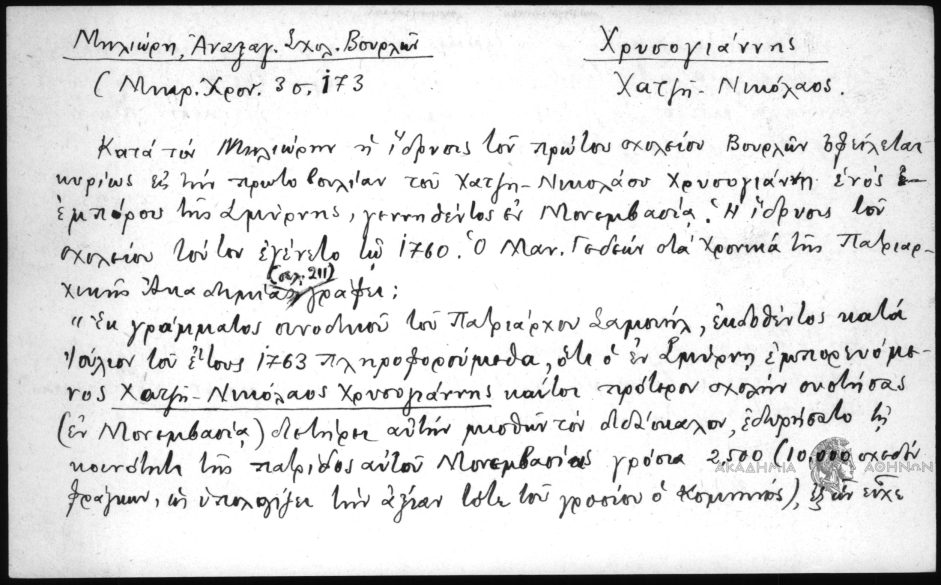 Μηλιώρη, Ἀναξαγ. Σχολ. Βουρλῶν
Χρυσογιάννης
(Μικρ. Χρον. 3 σ. 173
Χατζῆ-Νικόλαος.
Κατά τόν Μηλιώρην ἡ ἵδρυσις τοῦ πρώτου σχολείου Βουρλῶν ὀφείλεται
κυρίως εἰς τήν πρωτοβουλίαν τοῦ Χατζη-Νικολάου Χρυσογιάννη ἑνός
ἐμπόρου τῆς Σμύρνης, γεννηθέντος ἐν Μονεμβασίᾳ. Ἡ ἵδρυσις τοῦ
σχολείου τούτου ἐγένετο τῷ 1760. Ὁ Μαν. Γεδεών στά Χρονικά τῆς Πατριαρ-
(σελ. 211)
χικῆς Ἀκαδημίας γράφει:
"Ἐκ γράμματος συνοδικοῦ τοῦ Πατριάρχου Σαμουήλ, ἐκδοθέντος κατά
Ἰούλιον τοῦ ἔτους 1763 πληροφορούμεθα, ὅτι ὁ ἐν Σμύρνῃ ἐμπορευόμε-
νος Χατζῆ-Νικόλαος Χρυσογιάννης καίτοι πρότερον σχολήν συστήσας
(ἐν Μονεμβασίᾳ) διετήρει αὐτήν μισθῶν τόν διδάσκαλον, ἐδωρήσατο τῇ
κοινότητι τῆς πατρίδος αὐτοῦ Μονεμβασίας γρόσια 2,500 (10,000 σχεδόν
φράγκων, ὡς ὑπολογίζει τήν ἀξίαν τότε τοῦ γροσίου ὁ Κομνηνός), ἐξ ὧν εἶχε
ΑΚΑΔΗΜΙΑ ΑΘΗΝΩΝ